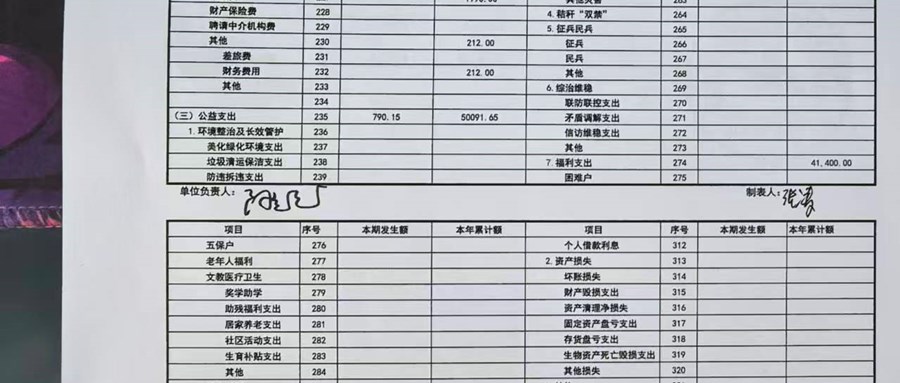 财产保险费 228 4. 秸秆“双禁” 264
聘请中介机构费 229 5. 征兵民兵 265
其他 230 212.00 征兵 266
差旅费 231 民兵 267
财务费用 232 212.00 其他 268
其他 233 6. 综治维稳 269
234 联防联控支出 270
(三)公益支出 235 790.15 50091.65 矛盾调解支出 271
1. 环境整治及长效管护 236 信访维稳支出 272
美化绿化环境支出 237 其他 273
垃圾清运保洁支出 238 7. 福利支出 274 41,400.00
防违拆违支出 239 困难户 275
单位负责人: 制表人:
项目 序号 本期发生额 本年累计额 项目 序号 本期发生额 本年累计额
五保户 276 个人借款利息 312
老年人福利 277 2. 资产损失 313
文教医疗卫生 278 坏账损失 314
奖学助学 279 财产毁损支出 315
助残福利支出 280 资产清理净损失 316
居家养老支出 281 固定资产盘亏支出 317
社区活动支出 282 存货盘亏支出 318
生育补贴支出 283 生物资产死亡毁损支出 319
其他 284 其他损失 320